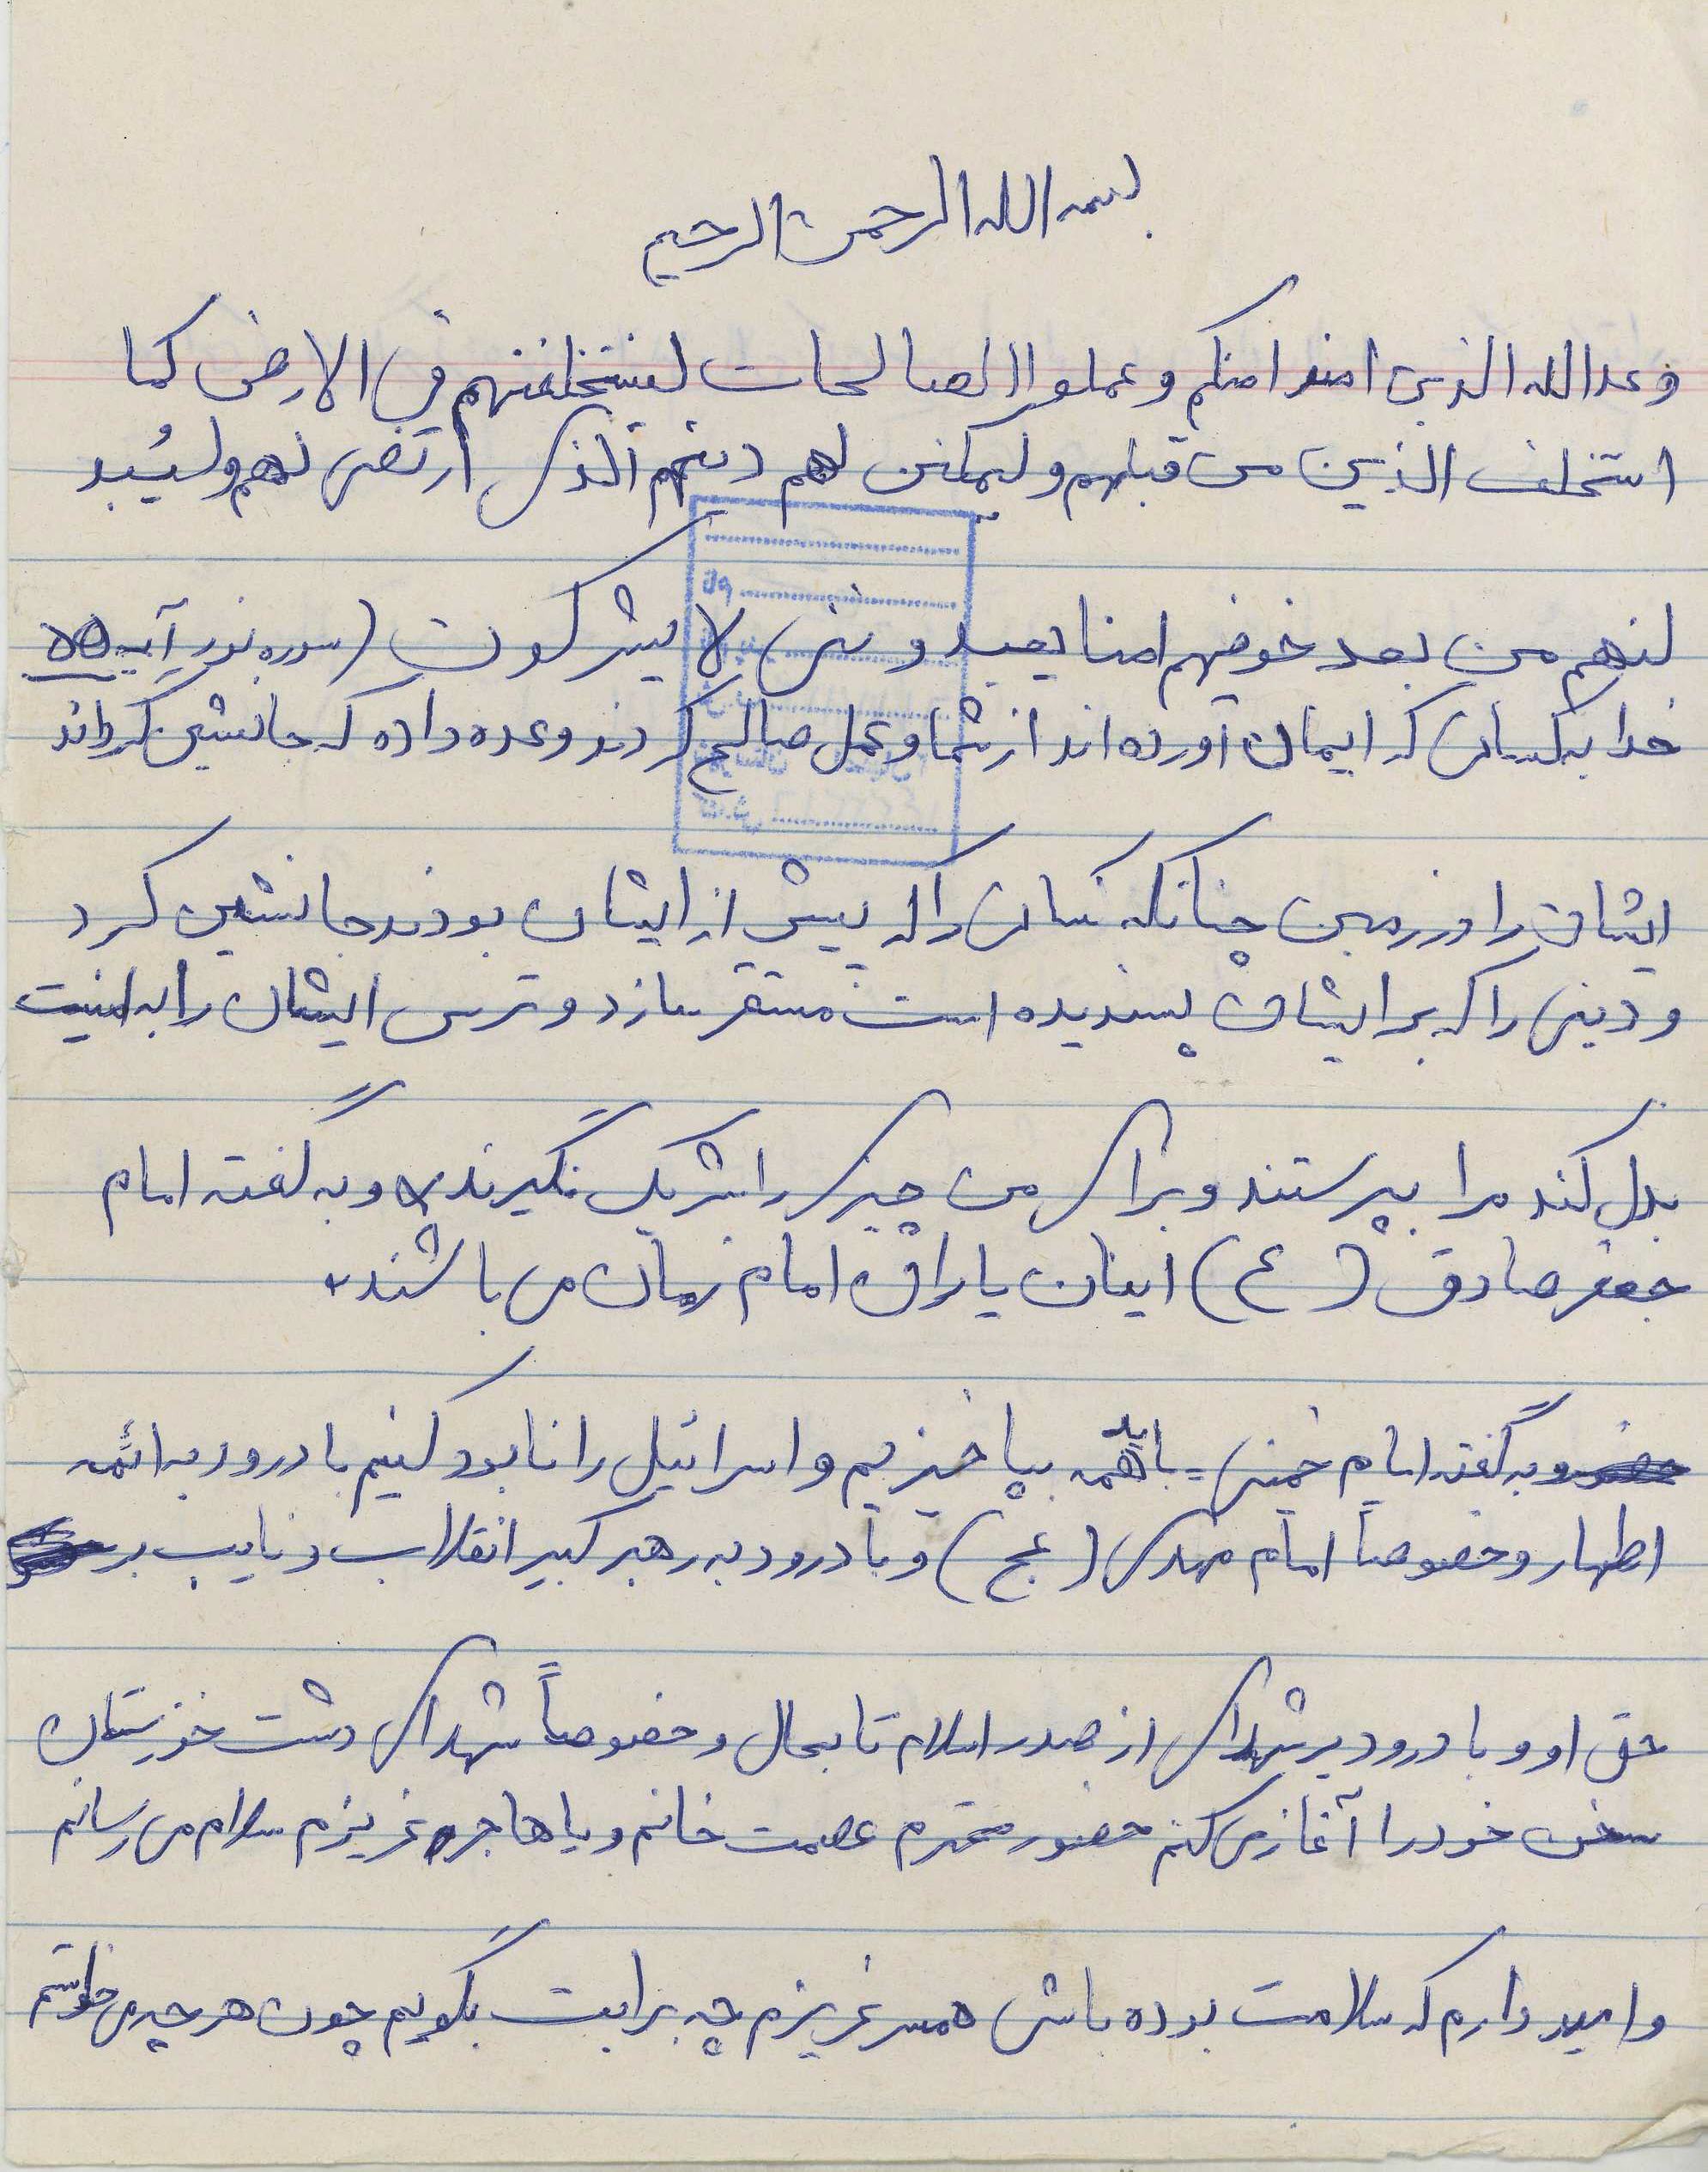 بسمه الله الرحمن الرحیم
وعدالله الذین امنو امنکم و عملو الصالحات لیستخلفنهم فی الارض کما
استخلف الذین من قبلهم و لیمکنن لهم دینهم الذی ارتضی لهم و لیُبد
لنهم من بعد خوفهم امنا یعبدو ننی لا یشرکون (سوره نور آیه ۵۵
خدا به کسانی که ایمان آورده اند از شما و عمل صالح کردند وعده داده که جانشین گرداند
ایشان را در زمین چنانکه کسانی را که پیش از ایشان بودند جانشین کرد
و دینی را که بر ایشان پسندیده است مستقر سازد و ترس ایشان را به امنیت
بدل کند مرا بپرستند و برای من چیزی را شریک نگیرند و به گفته امام
جعفر صادق (ع) اینان یاران امام زمان می باشند
و به گفته امام خمینی = باید همه بپا خیزیم و اسرائیل را نابود کنیم با درود به ائمه
اطهار و خصوصاً امام مهدی (عج) و با درود به رهبر کبیر انقلاب و نایب بر
حق او و با درود بر شهدای از صدر اسلام تا بحال و خصوصاً شهدای دشت خوزستان
سخن خود را آغاز می کنم حضور محترم عصمت خانم و یا هاجر عزیزم سلام می رسانم
و امید دارم که سلامت بوده باشی همسر عزیزم چه برایت بگویم چون هر چه می خواستم